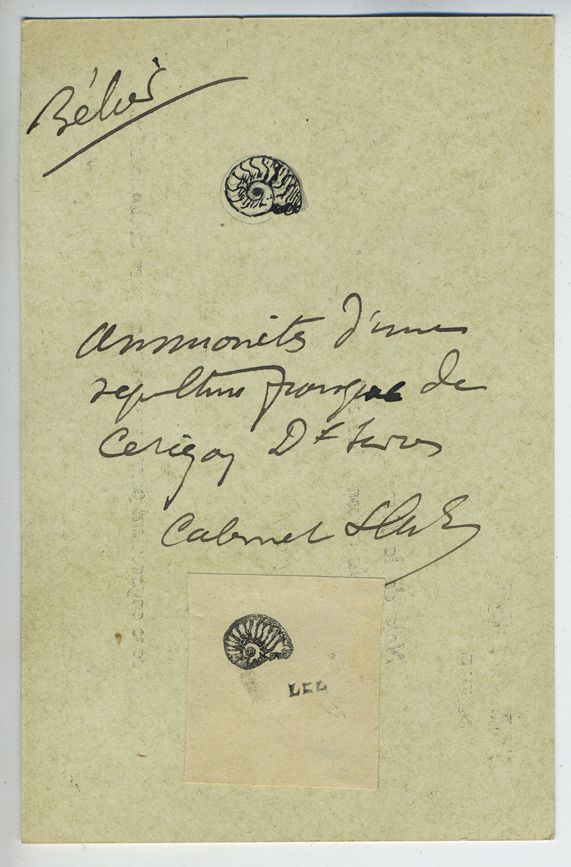 Bélier
Ammonites d'une
sépulture franque de
Cerizay Dx Sèvres
Cabinet
LEL